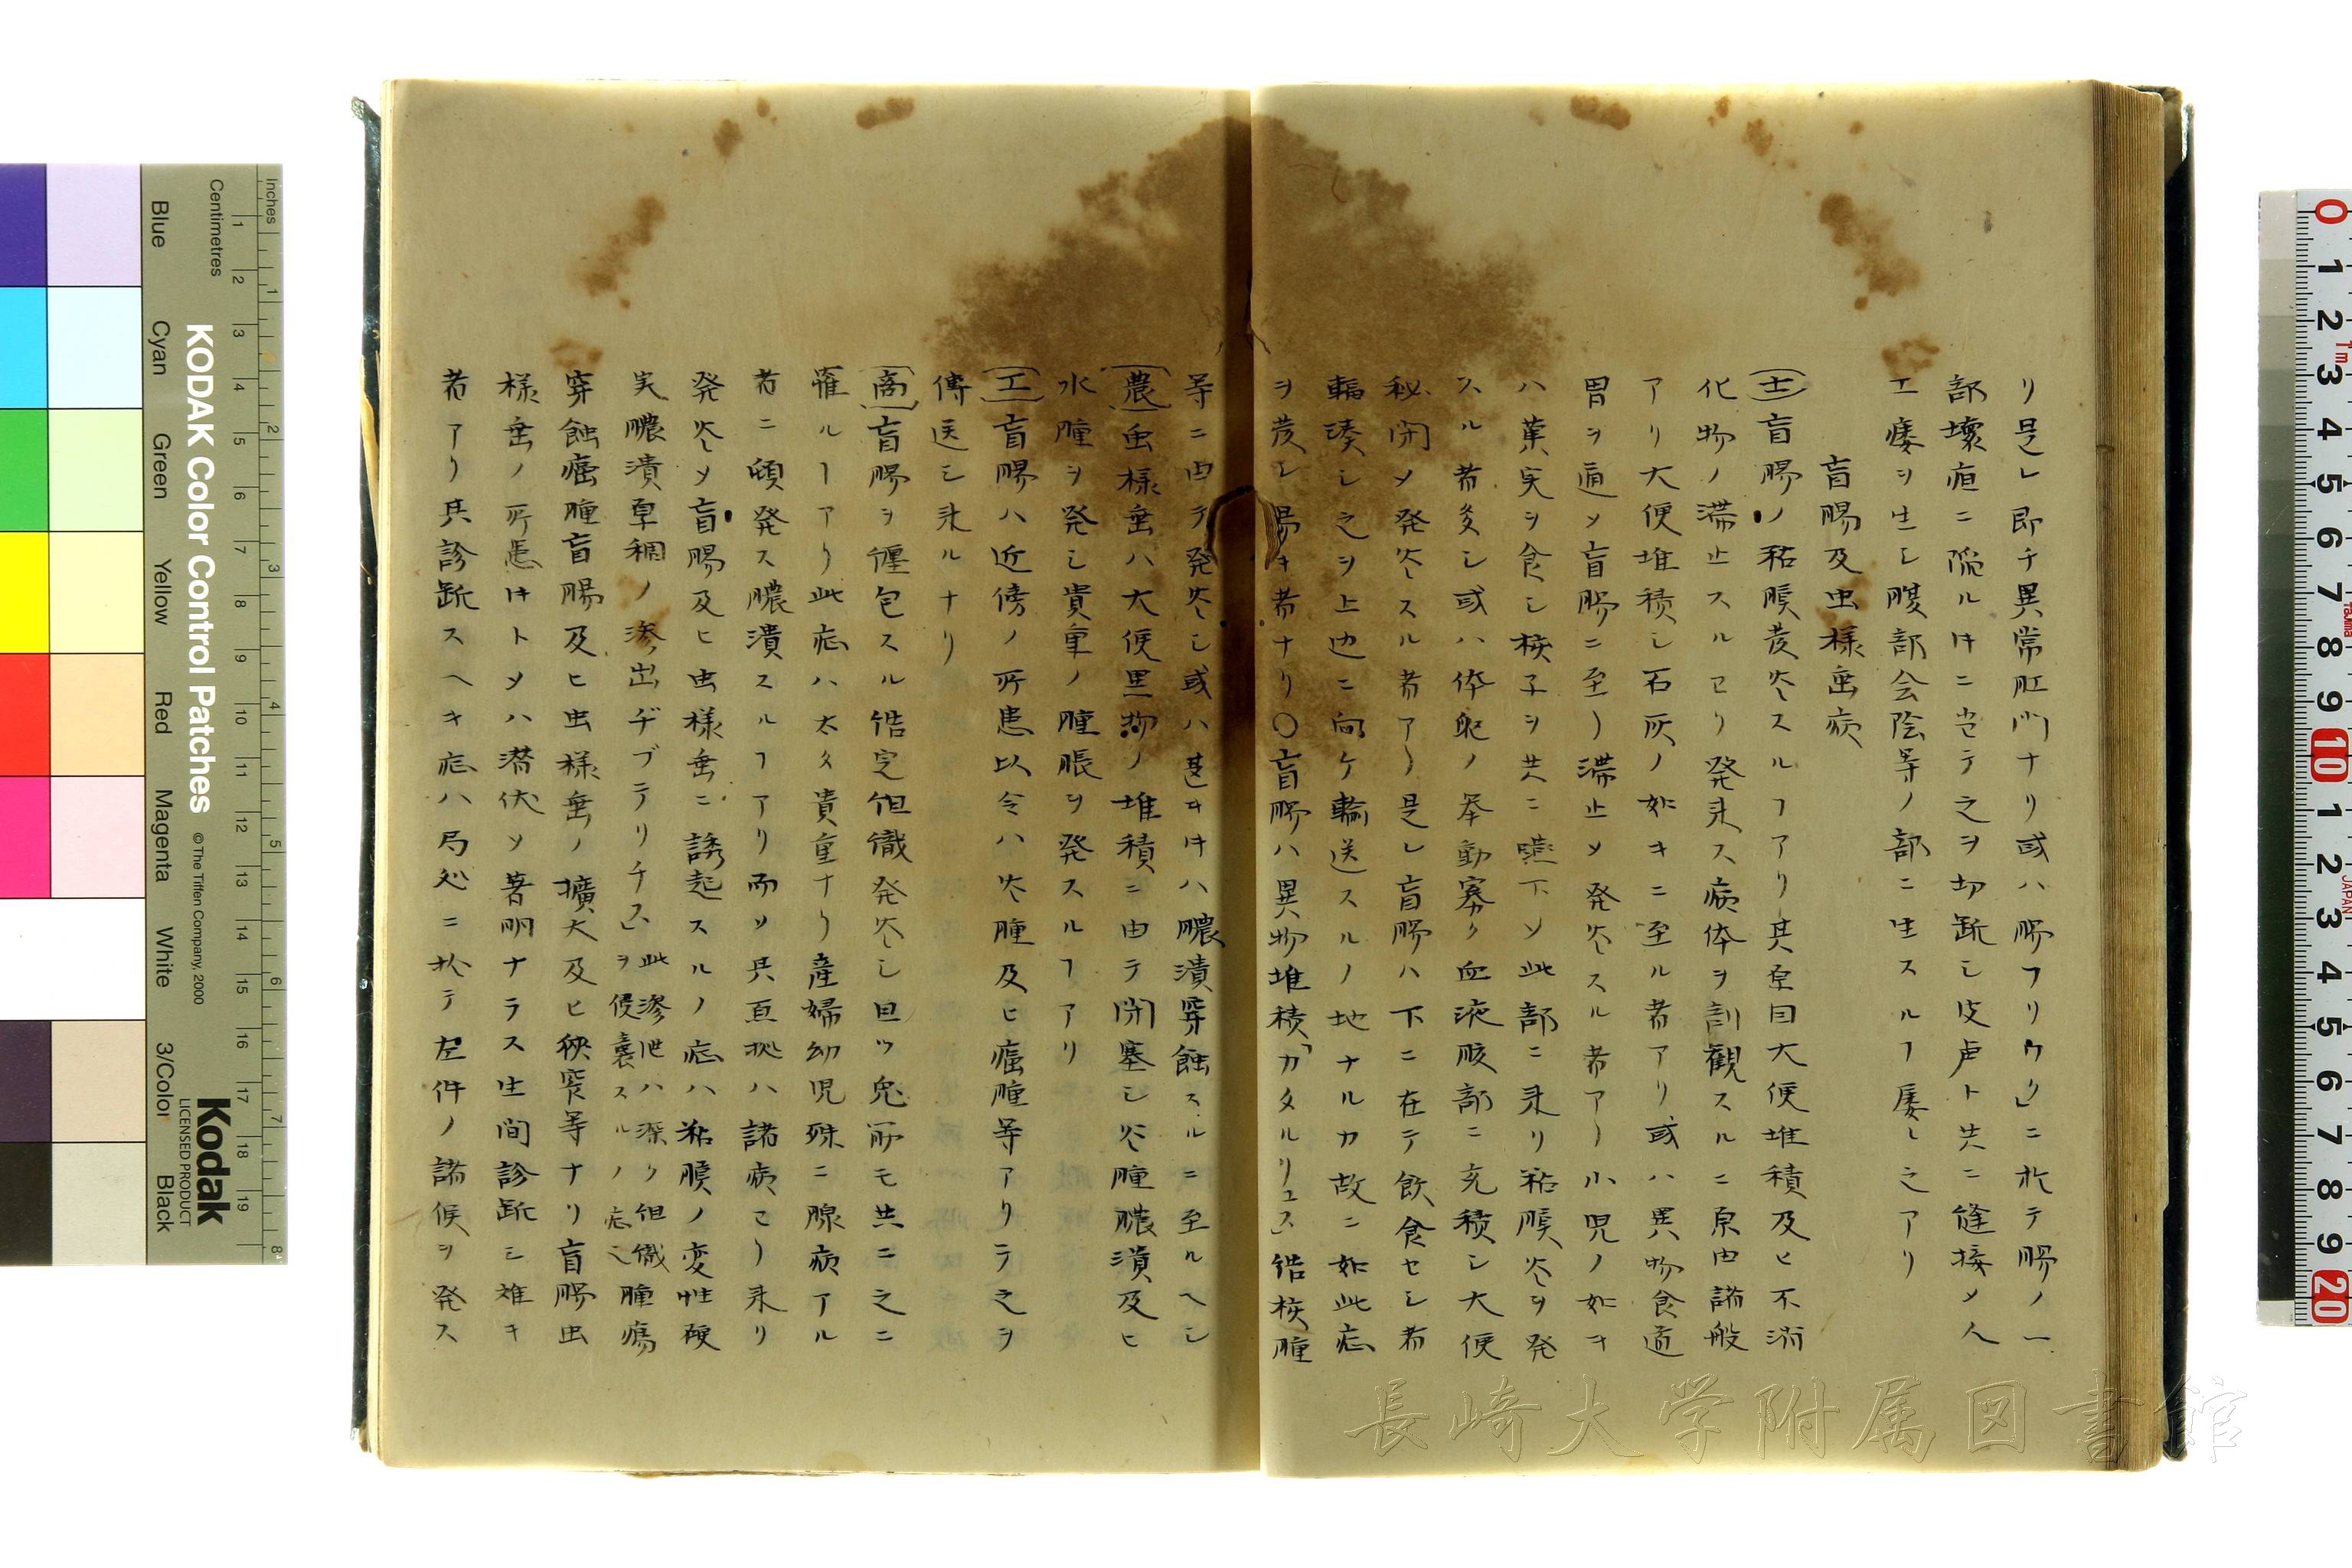 リ是レ即チ異常肛門ナリ或ハ膓フリウク」ニ於テ膓ノ一
部壊疽ニ陥ル䒾ニ当テ之ヲ切断シ皮膚ト共ニ縫接メ人
工瘻ヲ生シ腹部会陰等ノ部ニ生スルヿ屡〻之アリ
盲膓及虫様垂病
(士)盲膓ノ粘膜发炎スルヿアリ其原因大便堆積及ヒ不消
化物ノ滞止スルヨリ発来ス病体ヲ訓観スルニ原由諸般
アリ大便堆積シ石灰ノ如キニ至ル者アリ或ハ異物食道
胃ヲ通メ盲膓ニ至リ滞止メ発炎スル者アリ小児ノ如キ
ハ菓実ヲ食シ核子ヲ共ニ嚥下メ此部ニ来リ粘膜炎ヲ発
スル者多シ或ハ体躯ノ挙動寡ク血液腹部ニ充積シ大便
秘閉メ発炎スル者アリ是レ盲膓ハ下ニ在テ飲食セシ者
輻湊シ之ヲ上迆ニ向ケ輸送スルノ地ナルカ故ニ如此症
ヲ发シ易キ者ナリ〇盲膓ハ異物堆積「カタルリュス」结核腫
等ニ由テ発炎シ或ハ甚キ䒾ハ膿潰穿蝕スルニ至ルヘシ
(農)虫様垂ハ大便異物ノ堆積ニ由テ閉塞シ炎腫膿潰及ヒ
水腫ヲ発シ貴重ノ腫脹ヲ発スルヿアリ
(工)盲膓ハ近傍ノ所患以令ハ炎腫及ヒ癌腫等アリテ之ヲ
傳送シ来ルナリ
(商)盲膓ヲ纒包スル结定但織発炎シ且ツ兔所モ共ニ之ニ
罹ルヿアリ此症ハ太タ貴重ナリ産婦幼児殊ニ腺病アル
者ニ頻発ス膿潰スルヿアリ而メ其亙抵ハ諸病ヨリ来リ
発炎メ盲膓及ヒ虫様垂ニ誘起スルノ症ハ粘膜ノ変性硬
実膿潰卓稠ノ滲出ヂブテリチス」此滲泄ハ深ク但織ヲ侵襲スルノ症也腫瘍
穿蝕癌腫盲膓及ヒ虫様垂ノ擴大及ヒ狹窄等ナリ盲膓虫
様垂ノ所患䒾トメハ潜伏メ著明ナラス生間診断シ難キ
者アリ其診断スヘキ症ハ局処ニ於テ左件ノ諸候ヲ発ス
長崎大学附属図書館
Inches
Centimetres
KODAK Color Control Patches
© The Tiffen Company, 2000
Kodak
LICENSED PRODUCT
Blue Cyan Green Yellow Red Magenta White 3/Color Black